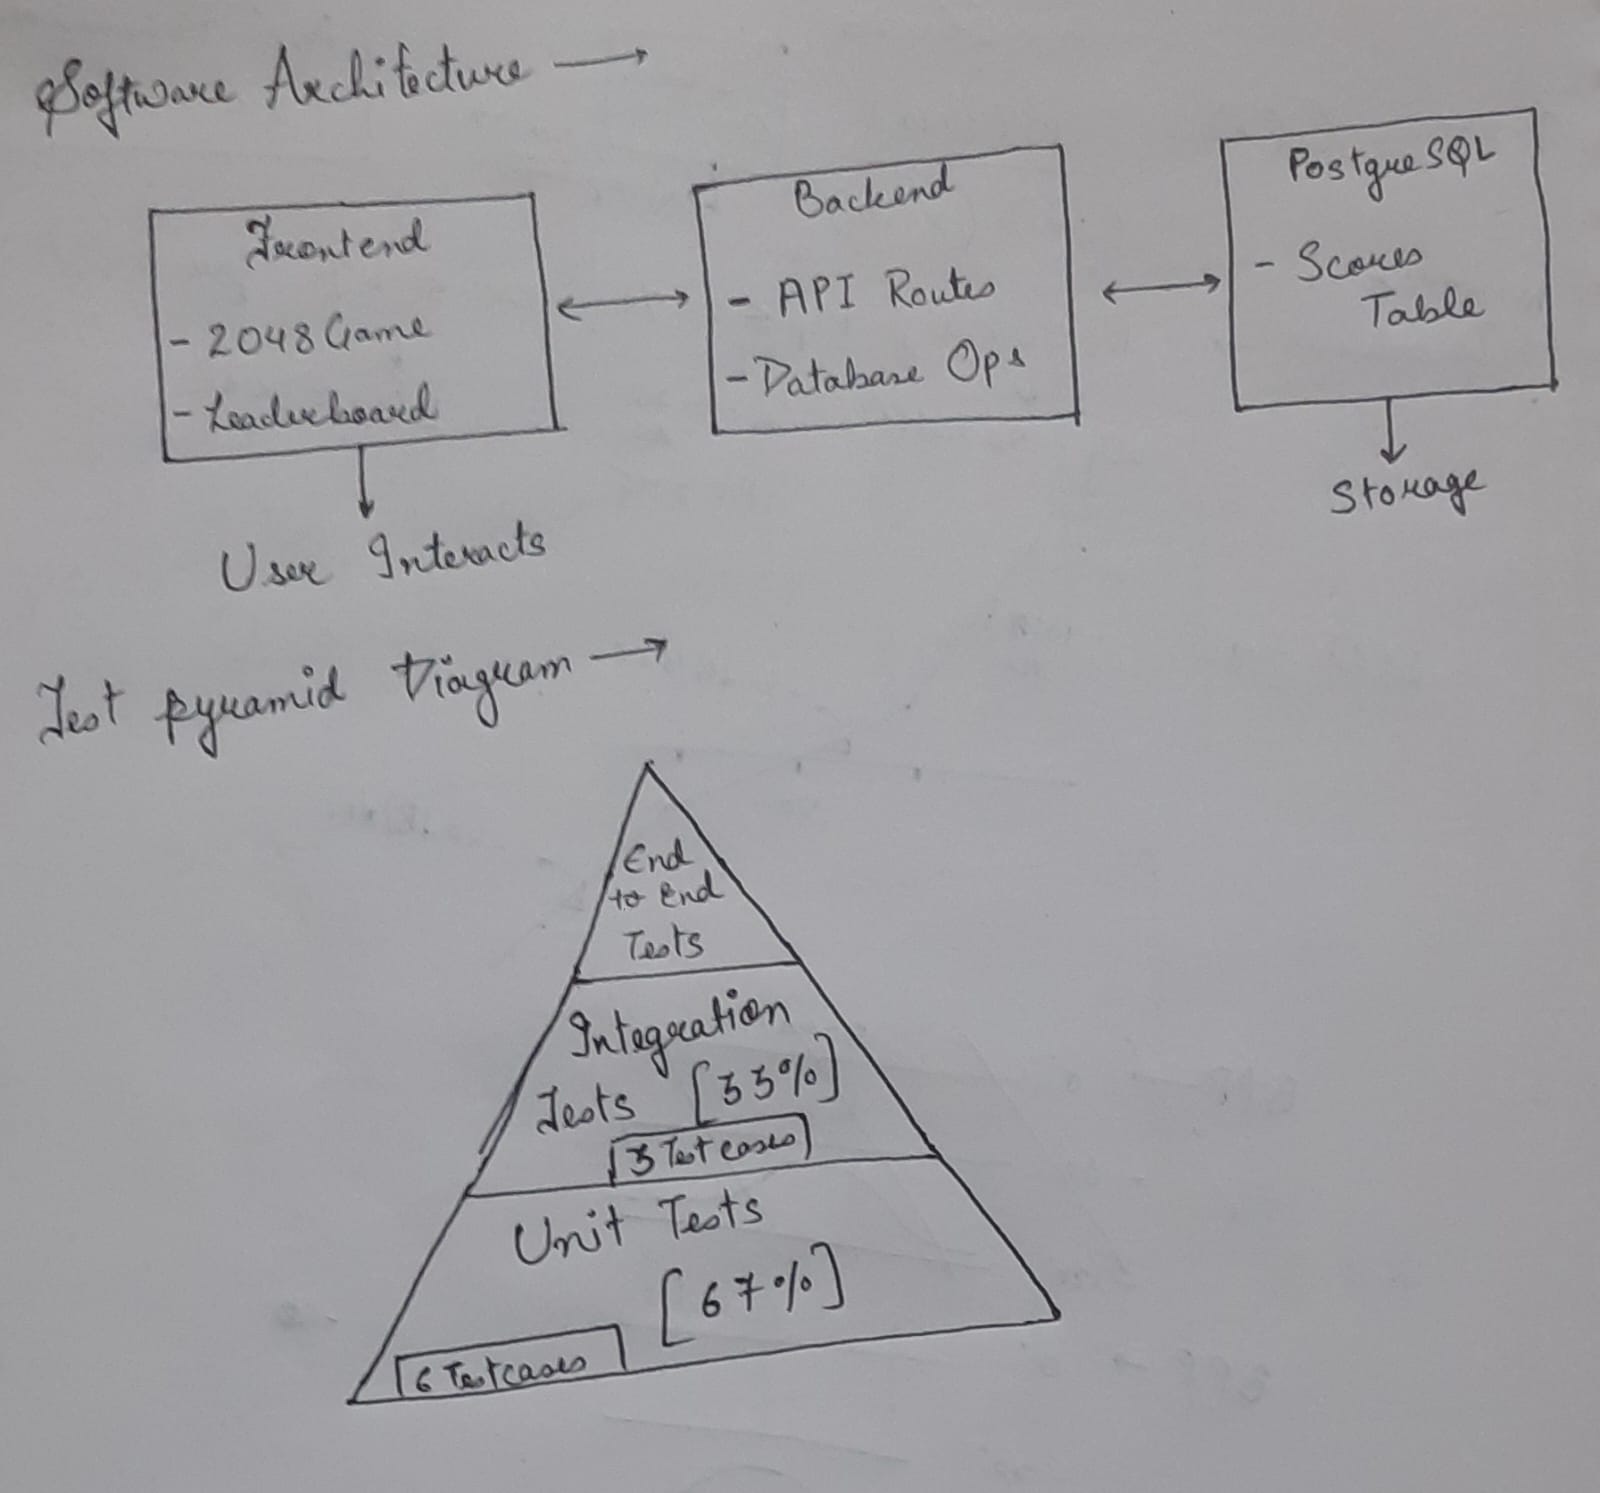 Software Architecture →
Frontend
- 2048 Game
- Leaderboard
User Interacts
Backend
- API Routes
- Database Ops
PostgreSQL
- Scores
Table
Storage
Test pyramid Diagram →
End
to End
Tests
Integration
Tests [33%]
3 Test cases
Unit Tests
[67%]
6 Testcases